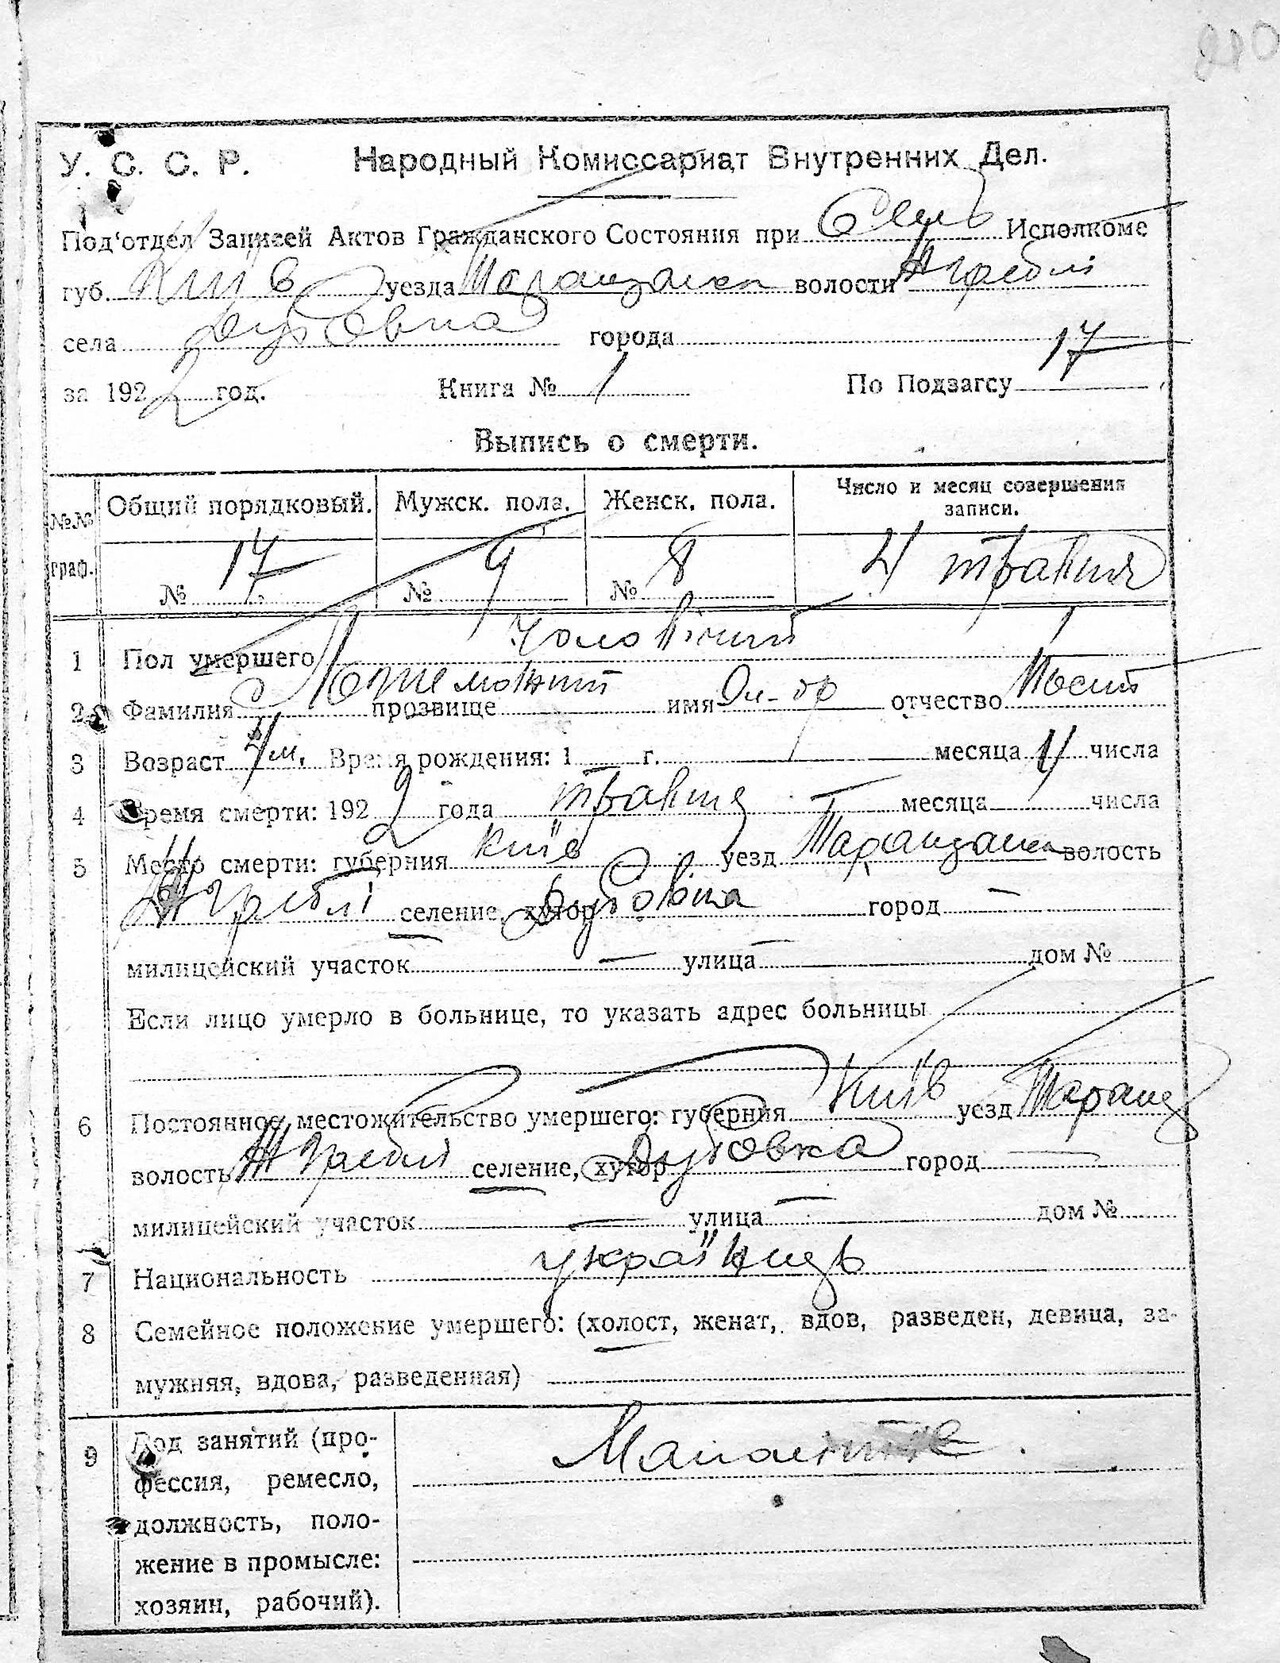 У. С. С. Р. Народный Комиссариат Внутренних Дел.
Под'отдел Записей Актов Гражданского Состояния при Исполкоме
губ. Київ уезда волости
села Дубовка города
за 1922 год. Книга № 1 По Подзагсу 17
Выпись о смерти.
№№ граф. Общий порядковый. Мужск. пола. Женск. пола. Число и месяц совершения записи.
№ 17 № 9 № 8 4 травня
1 Пол умершего Чоловічий
2 Фамилия прозвище имя отчество
3 Возраст м. Время рождения: 1 г. месяца числа
4 Время смерти: 1922 года травня месяца числа
5 Место смерти: губерния Київ уезд волость
селение, хутор Дубовка город —
милицейский участок — улица — дом №
Если лицо умерло в больнице, то указать адрес больницы
6 Постоянное местожительство умершего: губерния Київ уезд
волость селение, хутор Дубовка город —
милицейский участок — улица — дом №
7 Национальность українець
8 Семейное положение умершего: (холост, женат, вдов, разведен, девица, за-
мужняя, вдова, разведенная)
9 Род занятий (про-
фессия, ремесло,
должность, поло-
жение в промысле:
хозяин, рабочий).